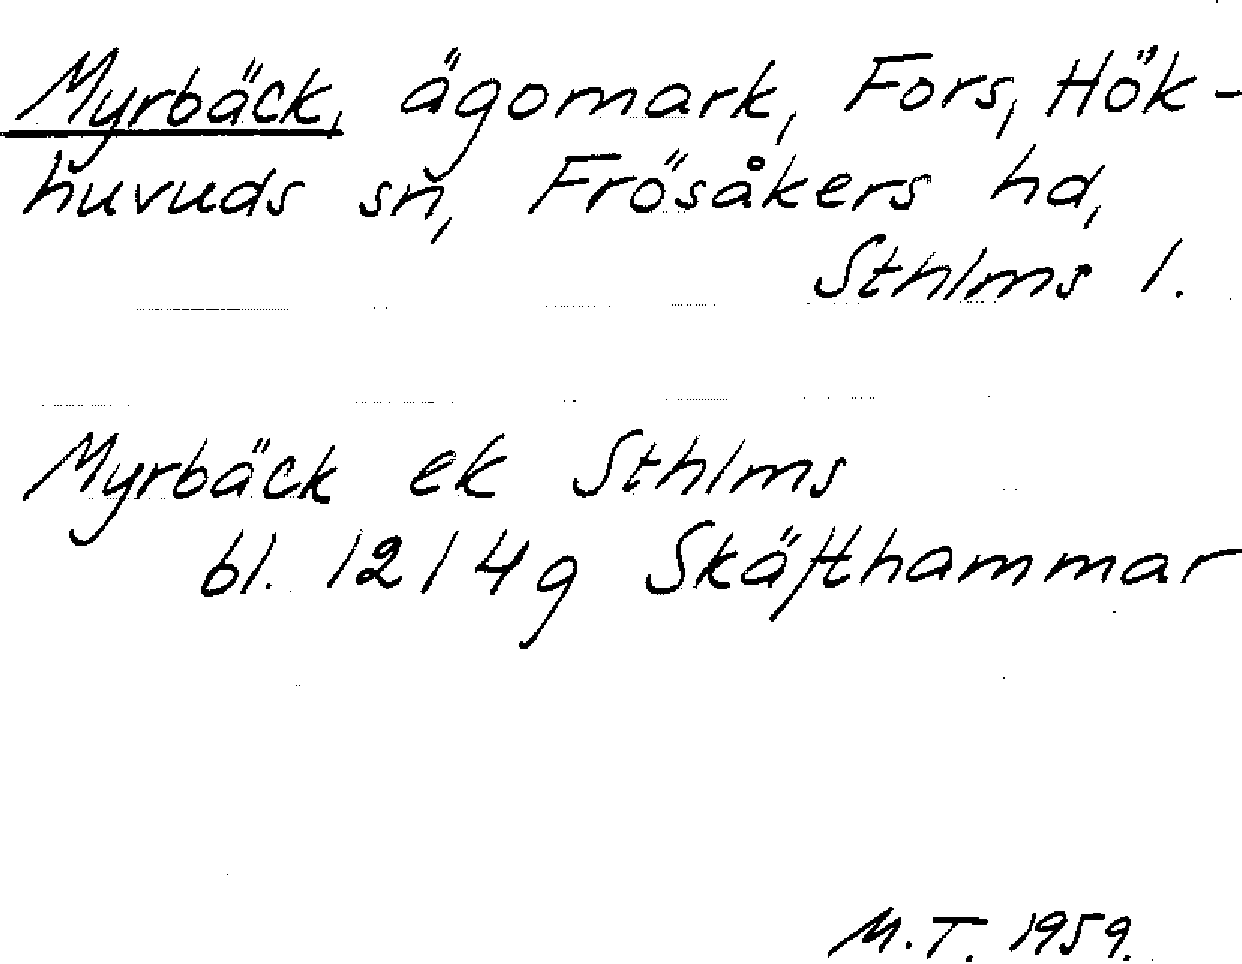 Myrbäck, ägomark, Fors, Hök-
huvuds sn, Frösåkers hd,
Sthlms l.
Myrbäck ek Sthlms
bl. 1214g Skäfthammar
M.T. 1959.